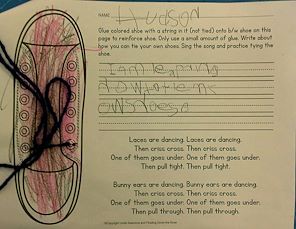 NAME Hudson
Glue colored shoe with a string in it (not tied) onto b/w shoe on
this page to reinforce shoe. Only use a small amount of glue. Write about
how you can tie your own shoes. Sing the song and practice tying the
shoe.
I am leaping
Laces are dancing. Laces are dancing.
Then criss cross. Then criss cross.
One of them goes under. One of them goes under.
Then pull tight. Then pull tight.
Bunny ears are dancing. Bunny ears are dancing.
Then criss cross. Then criss cross.
One of them goes under. One of them goes under.
Then pull through. Then pull through.